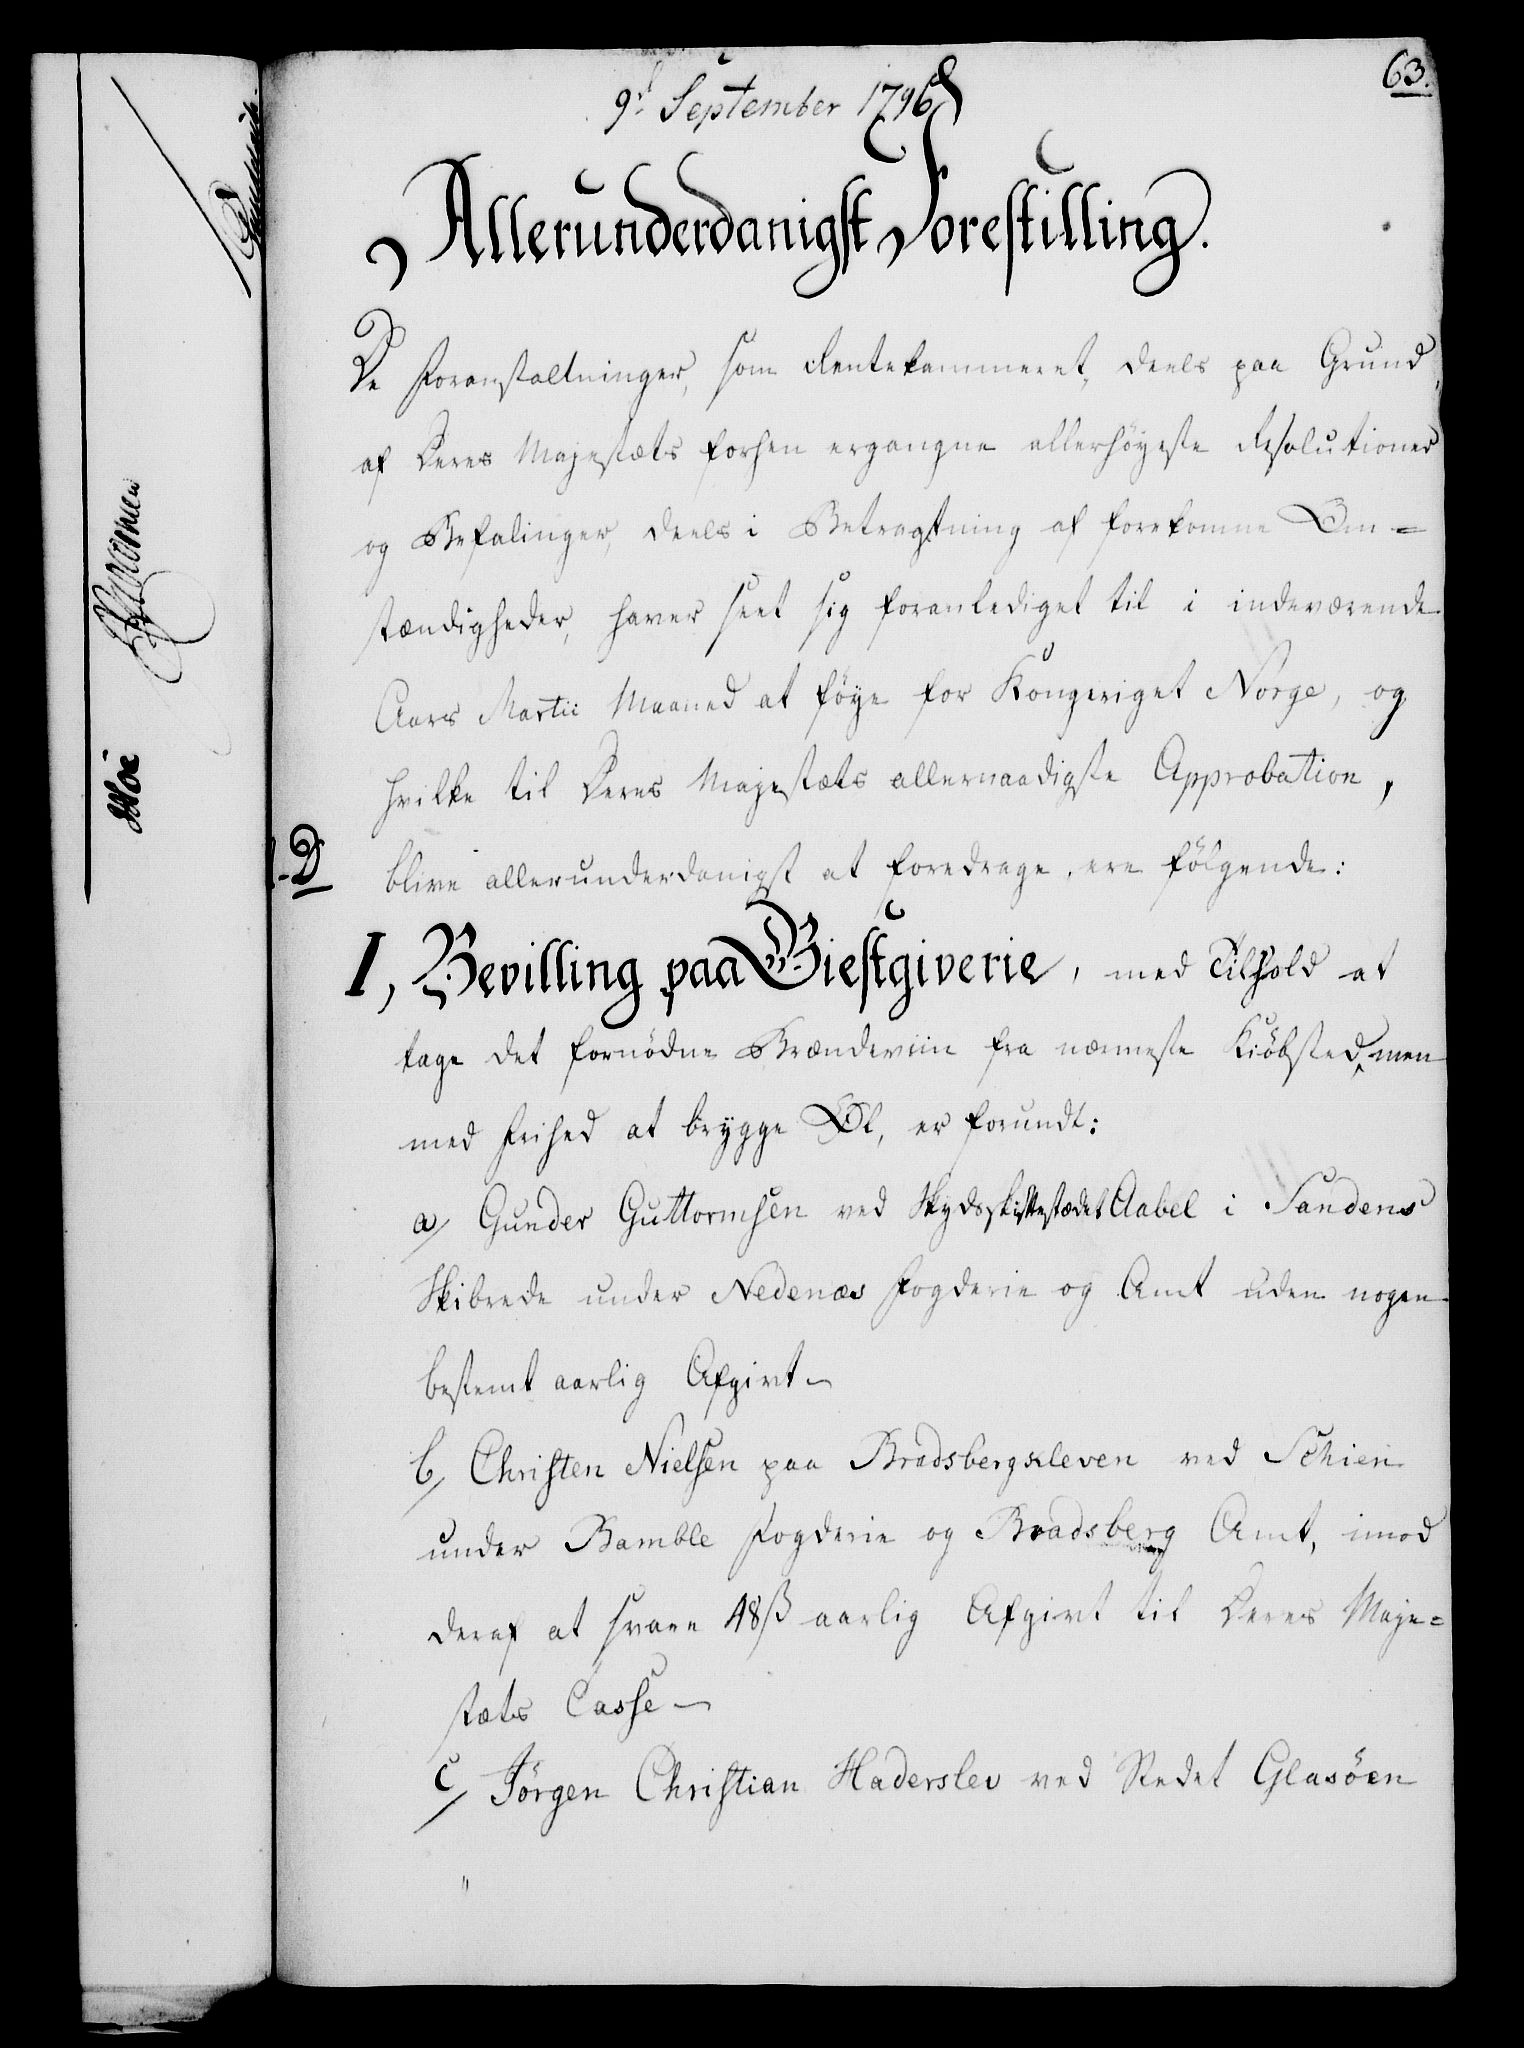 63.
9d September 1796
Allerunderdanigst Forestilling.
De Foranstaltninger, som Rentekammeret, deels paa Grund
af Deres Majestæts forhen ergangne allerhöyeste Resolutioner
og Befalinger, deels i Betragtning af forekomne Om=
stændigheder, haver seet sig foranlediget til i indeværende
Aars Martii Maaned at föye for Kongeriget Norge, og
hvilke til Deres Majestæts allernaadigste Approbation,
blive allerunderdanigst at foredrage, ere fölgende:
I, Bevilling paa Giestgiverie, med Tilhold at
tage det fornödne Brændeviin fra nærmeste Kiöbsted, men
med Frihed at brygge Øl, er forundt:
a/ Gunder Guttormsen ved Skydsskiftestædet Aabel i Sandens
Skibrede under Nedenæs Fogderie og Amt uden nogen
bestemt aarlig Afgivt -
b/ Christen Nielsen paa Bradsbergkleven ved Schien
under Bamble Fogderie og Bradsberg Amt, imod
deraf at svare 48 ß aarlig Afgivt til Deres Maje=
stæts Casse -
c/ Jörgen Christian Haderslev ved Stedet Glasöen